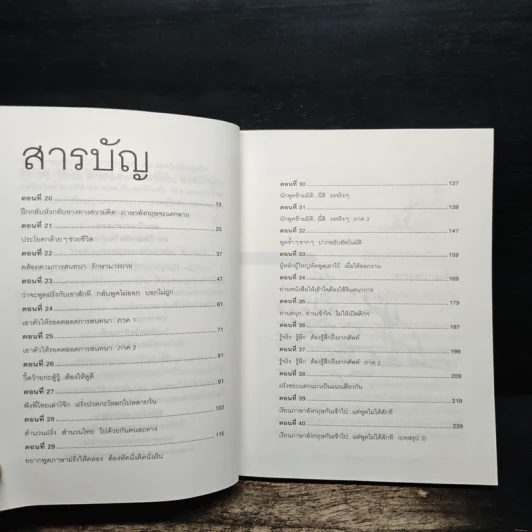 สารบัญ
ตอนที่ 20 13
ฝึกกลับหัวกลับหางทางความคิด ภาษาอังกฤษจะแตกฉาน
ตอนที่ 21 25
ประโยคกล้วยๆ ช่วยชีวิต
ตอนที่ 22 37
คล้อยตามการสนทนา รักษามารยาท
ตอนที่ 23 47
ว่าจะพูดฝรั่งกับเขาสักที กลับพูดไม่ออก บอกไม่ถูก
ตอนที่ 24 61
เอาตัวให้รอดตลอดการสนทนา ภาค 1
ตอนที่ 25 71
เอาตัวให้รอดตลอดการสนทนา ภาค 2
ตอนที่ 26 81
ต้องให้ดูดี
ตอนที่ 27 91
ฟังพี่ไทยเล่าโจ๊ก ฝรั่งปวดกะโหลกไปหลายวัน
ตอนที่ 28 103
สำนวนฝรั่ง สำนวนไทย ไปด้วยกันคนละทาง
ตอนที่ 29 115
อยากพูดภาษาฝรั่งให้คล่อง ต้องหัดนั่งคิดนั่งฝัน
ตอนที่ 30 127
นักพูดซ้ายมิติ นี่สิ ของจริงๆ
ตอนที่ 31 139
ภาค 2
ตอนที่ 32 147
พูดซ้ำซากๆ ปากขยับอัตโนมัติ
ตอนที่ 33 159
ผู้หลักผู้ใหญ่หัดพูดเอาไว้ เมื่อได้ออกงาน
ตอนที่ 34 169
อ่านหนังสือให้เข้าใจต้องใช้จินตนาการ
ตอนที่ 35 179
อ่านสนุก อ่านเข้าใจ ไม่ให้เปิดดิกฯ
ตอนที่ 36 187
รู้จริง รู้ลึก ต้องรู้สึกถึงรากศัพท์
ตอนที่ 37 199
รู้จริง รู้ลึก ต้องรู้สึกถึงรากศัพท์ ภาค 2
ตอนที่ 38 209
ตอนที่ 39 219
เรียนภาษาอังกฤษกันเข้าไป...แต่พูดไม่ได้สักที
ตอนที่ 40 229
เรียนภาษาอังกฤษกันเข้าไป...แต่พูดไม่ได้สักที (บทสรุป 2)